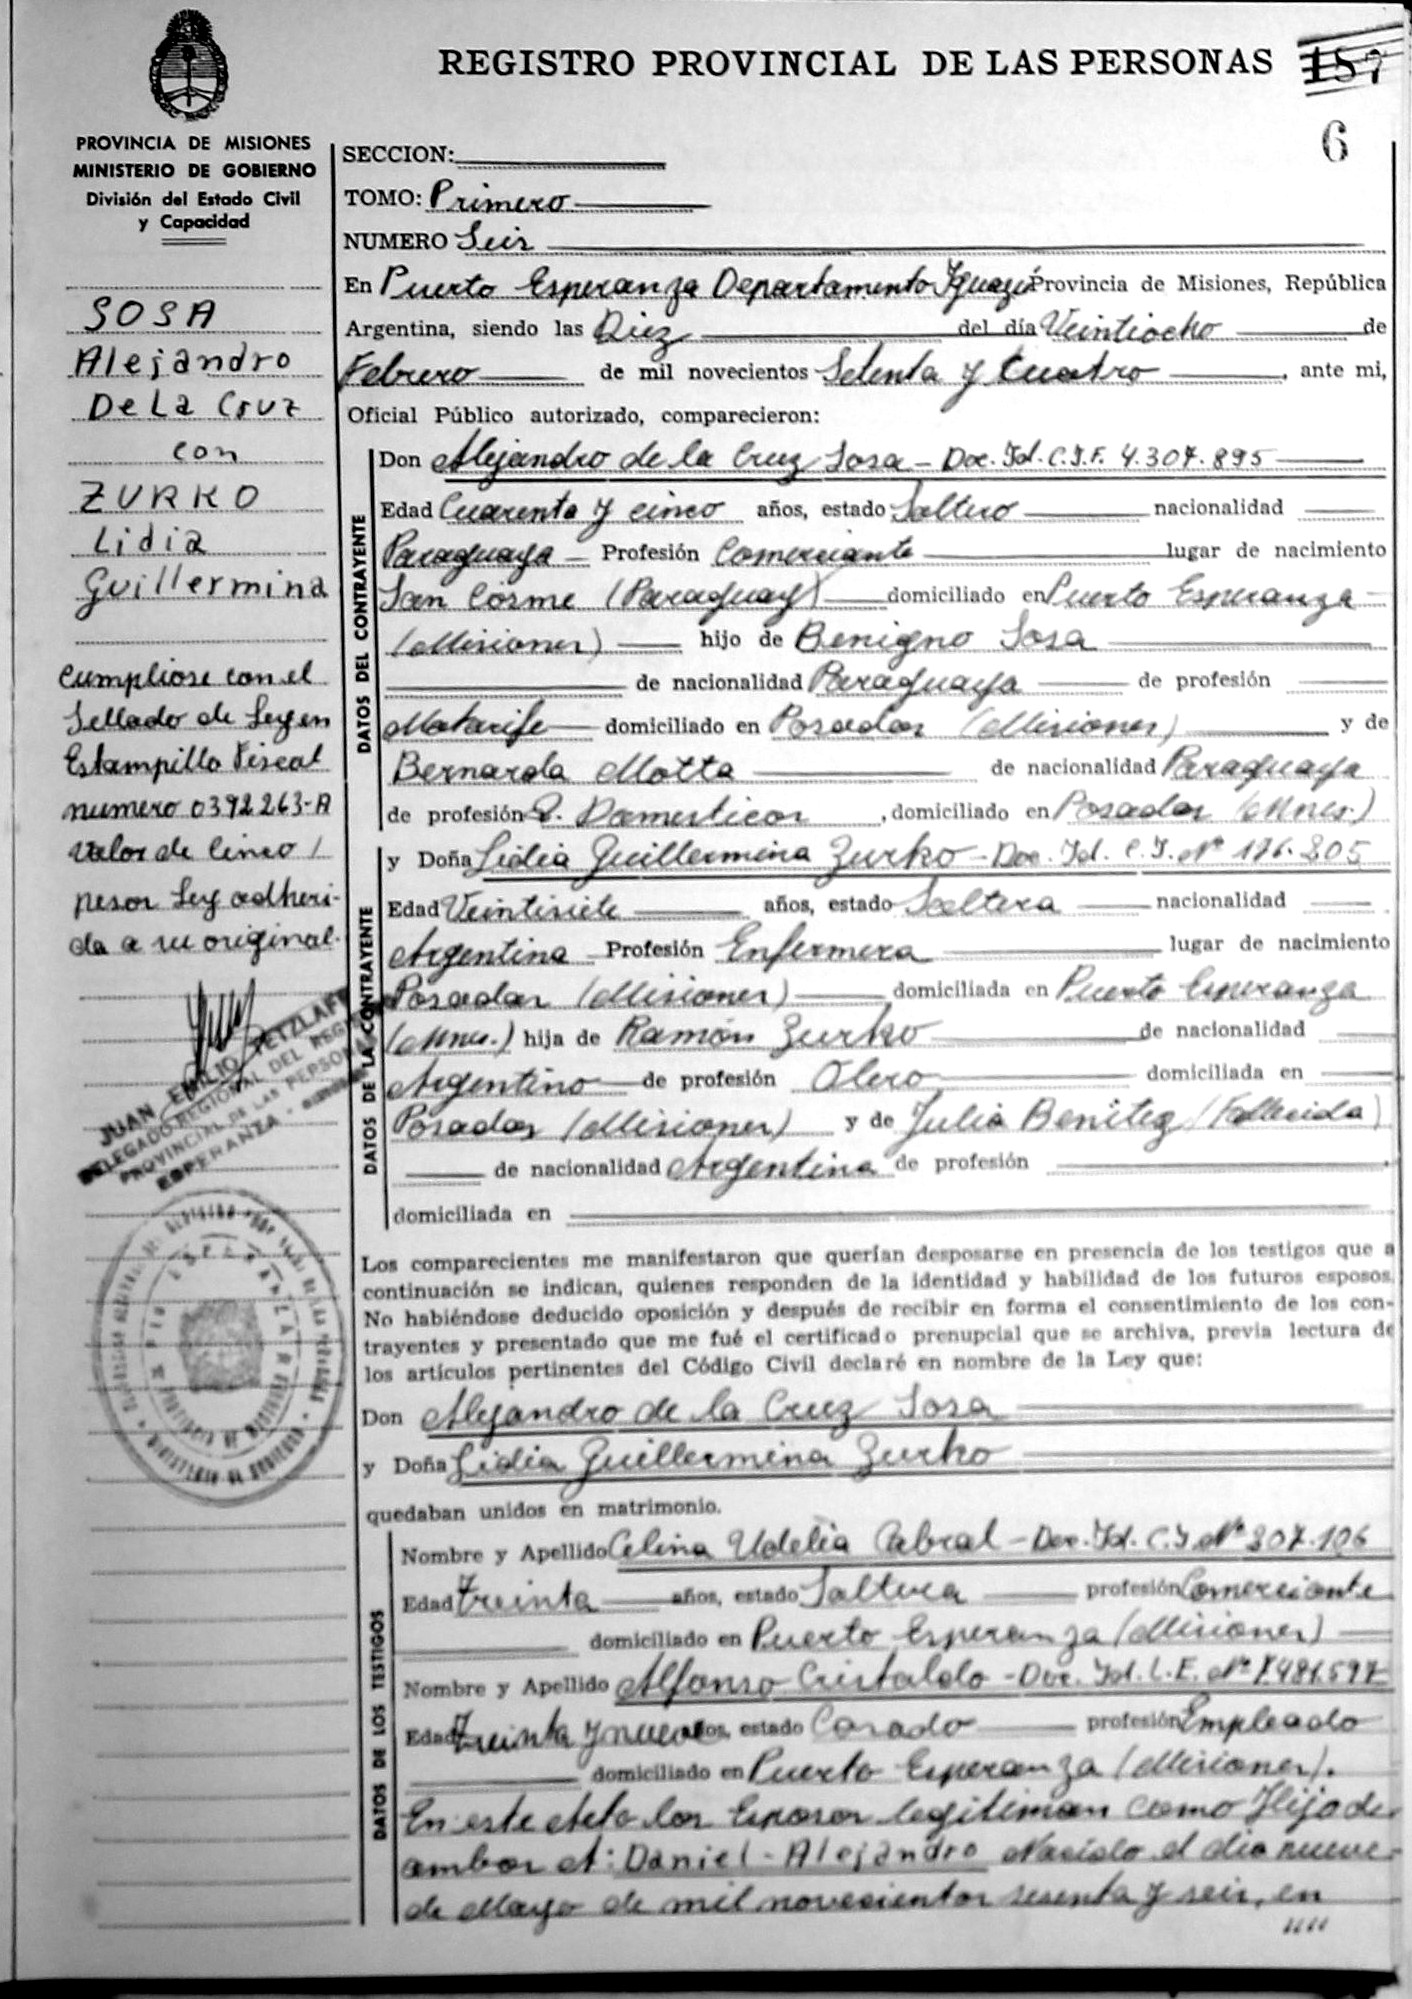 REGISTRO PROVINCIAL DE LAS PERSONAS 157
6
PROVINCIA DE MISIONES
MINISTERIO DE GOBIERNO
División del Estado Civil
y Capacidad
SOSA
Alejandro
De La Cruz
con
ZURKO
Lidia
Guillermina
Cumpliose con el
Sellado de Ley en
Estampilla Fiscal
numero 0392263-A
valor de Cinco /
pesos Ley adheri-
da a su original.
JUAN EMILIO TETZLAFF
DELEGADO REGIONAL DEL REGISTRO
PROVINCIAL DE LAS PERSONAS
ESPERANZA -
SECCION:
TOMO: Primero
NUMERO Seis
En Puerto Esperanza Departamento Iguazú Provincia de Misiones, República
Argentina, siendo las Diez del día Veintiocho de
Febrero de mil novecientos Setenta y Cuatro, ante mi,
Oficial Público autorizado, comparecieron:
DATOS DEL CONTRAYENTE
Don Alejandro de la Cruz Sosa - Doc. Id. C.I.F. 4.307.895
Edad Cuarenta y cinco años, estado Soltero nacionalidad
Paraguaya - Profesión Comerciante lugar de nacimiento
San Cosme (Paraguay) domiciliado en Puerto Esperanza
(Misiones) hijo de Benigno Sosa
de nacionalidad Paraguaya de profesión
Matarife domiciliado en Posadas (Misiones) y de
Bernarda Motta de nacionalidad Paraguaya
de profesión Q. Domesticos, domiciliado en Posadas (Mnes.)
DATOS DE LA CONTRAYENTE
y Doña Lidia Guillermina Zurko - Doc. Id. C.I. Nº 176.805
Edad Veintisiete años, estado Soltera nacionalidad
Argentina Profesión Enfermera lugar de nacimiento
Posadas (Misiones) domiciliada en Puerto Esperanza
(Mnes.) hija de Ramón Zurko de nacionalidad
Argentino de profesión Olero domiciliada en
Posadas (Misiones) y de Julia Benitez (Fallecida)
de nacionalidad Argentina de profesión
domiciliada en
Los comparecientes me manifestaron que querían desposarse en presencia de los testigos que a
continuación se indican, quienes responden de la identidad y habilidad de los futuros esposos.
No habiéndose deducido oposición y después de recibir en forma el consentimiento de los con-
trayentes y presentado que me fué el certificado prenupcial que se archiva, previa lectura de
los artículos pertinentes del Código Civil declaré en nombre de la Ley que:
Don Alejandro de la Cruz Sosa
y Doña Lidia Guillermina Zurko
quedaban unidos en matrimonio.
DATOS DE LOS TESTIGOS
Nombre y Apellido Celina Udelia Cabral - Doc. Id. C.I Nº 307.106
Edad Treinta años, estado Soltera profesión Comerciante
domiciliado en Puerto Esperanza (Misiones)
Nombre y Apellido Alfonso Cristaldo - Doc. Id. L.E. Nº 7.481.597
Edad Treinta y nueve años, estado Casado profesión Empleado
domiciliado en Puerto Esperanza (Misiones).
En este Acto los Esposos legitiman como Hijo de
ambos A: Daniel - Alejandro Nacido el dia nueve
de Mayo de mil novecientos sesenta y seis, en
""